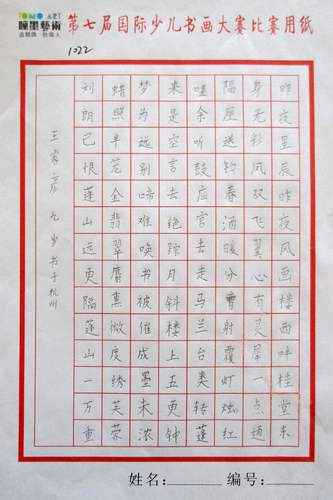 TOMO ART
第七届国际少儿书画大赛比赛用纸
1022
昨夜星辰昨夜风画楼西畔桂堂东
身无彩凤双飞翼心有灵犀一点通
隔座送钩春酒暖分曹射覆灯烛红
嗟余听鼓应官去走马兰台类转蓬
来是空言去绝踪月斜楼上五更钟
梦为远别啼难唤书被催成墨未浓
蜡照半笼金翡翠麝熏微度绣芙蓉
刘朗已恨蓬山远更隔蓬山一万重
书于杭州
姓名： 编号：